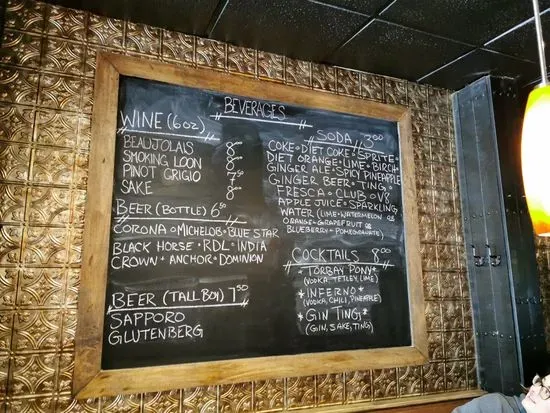 BEVERAGES
WINE (6oz)
BEAUJOLAIS 8⁰⁰
SMOKING LOON 8⁰⁰
PINOT GRIGIO 7⁵⁰
SAKE 8⁰⁰
BEER (BOTTLE) 6⁵⁰
CORONA • MICHELOB • BLUE STAR
BLACK HORSE • RDL • INDIA
CROWN + ANCHOR • DOMINION
BEER (TALL BOY) 7⁵⁰
SAPPORO
GLUTENBERG
SODA 3.00
COKE • DIET COKE • SPRITE •
DIET ORANGE • LIME • BIRCH •
GINGER ALE • SPICY PINEAPPLE
GINGER BEER • TING •
FRESCA • CLUB • V8
APPLE JUICE • SPARKLING
WATER (LIME • WATERMELON OR
ORANGE • GRAPEFRUIT OR
BLUEBERRY + POMEGRANATE)
COCKTAILS 8.00
* TORBAY PONY *
(VODKA, TETLEY, LIME)
* INFERNO *
(VODKA, CHILI, PINEAPPLE)
* GIN TING *
(GIN, SAKE, TING)